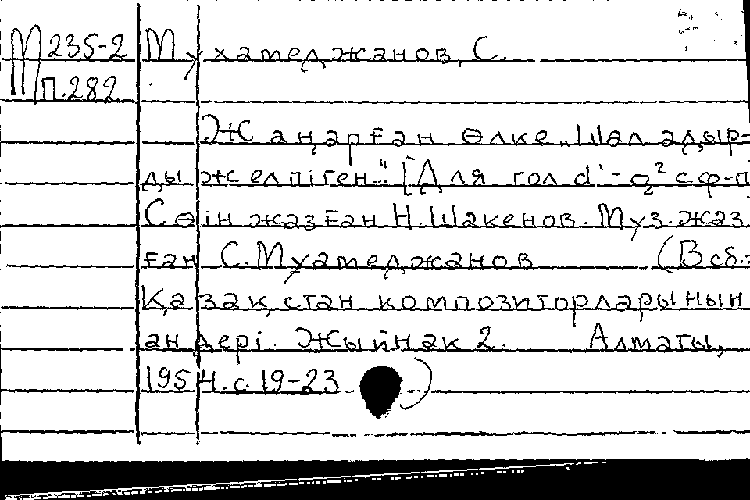 М 235-2 Мухамеджанов, С.
П.282
Жаңарған өлке „Шал адыр-
ды желпіген..." [Для гол d¹-g² с ф-п
Сөзін жазған Н. Шакенов. Муз. жаз
ған С. Муамеджанов (В сб.:
Қазақстан композиторларының
андері. Жыйнак 2. Алматы,
1954. с. 19-23)